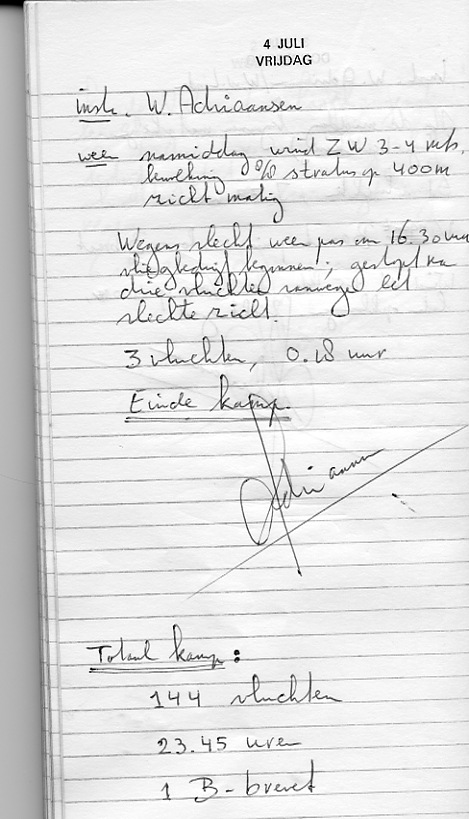 4 JULI
VRIJDAG
instr. W. Adriaansen
weer namiddag wind ZW 3-4 m/s,
bewolking 8/8 stratus op 400m
zicht matig
Wegens slecht weer pas om 16.30 uur
vliegbedrijf begonnen; gestopt na
drie vluchten vanwege het
slechte zicht.
3 vluchten, 0.18 uur
Einde kamp.
Adriaansen
Totaal kamp:
144 vluchten
23.45 uren
1 B-brevet